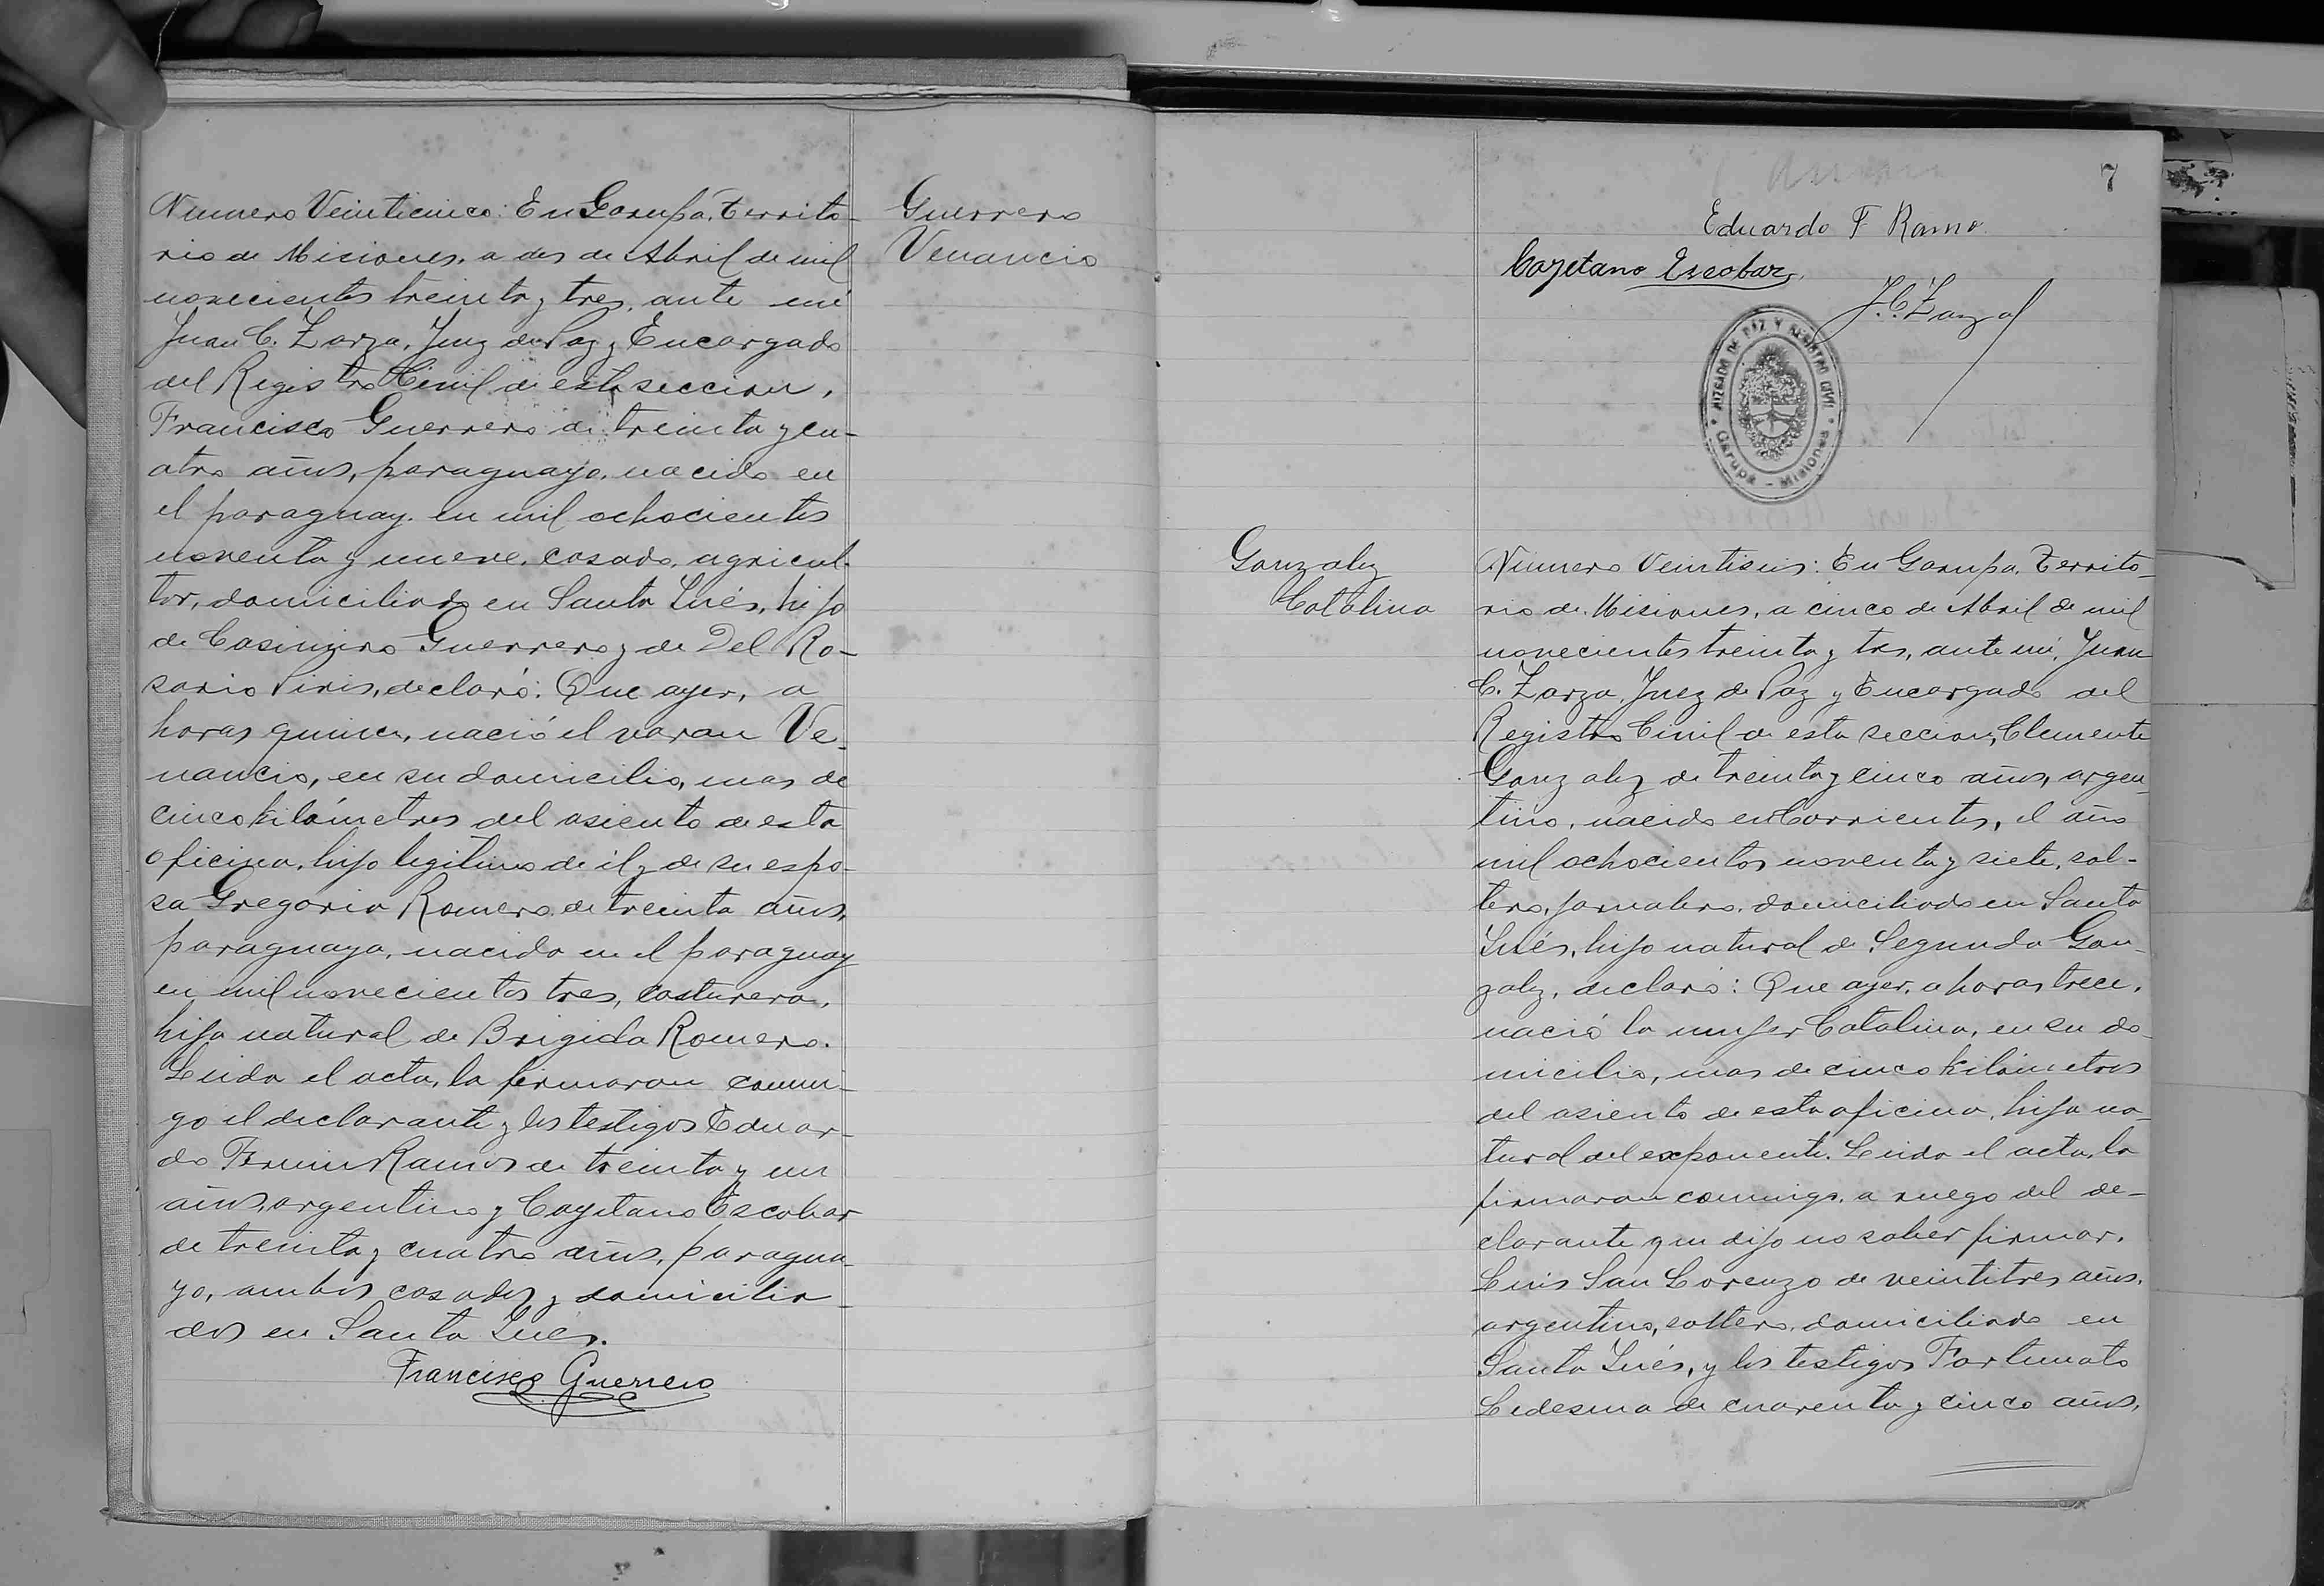 Numero Veinticinco: En Garupá, Territo-
rio de Misiones, a dos de Abril de mil
novecientos treinta y tres, ante mí
Juan C. Zarza, Juez de Paz y Encargado
del Registro Civil de esta seccion,
Francisco Guerrero de treinta y cu-
atro años, paraguayo, nacido en
el paraguay en mil ochocientos
noventa y nueve, casado, agricul-
tor, domiciliado en Santa Inés, hijo
de Casimiro Guerrero y de Del Ro-
sario Piris, declaró: Que ayer, a
horas quince, nació el varon Ve-
nancio, en su domicilio, mas de
cinco kilómetros del asiento de esta
oficina, hijo legitimo de él y de su espo-
sa Gregoria Romero de treinta años,
paraguaya, nacida en el paraguay
en mil novecientos tres, costurera,
hija natural de Brigida Romero.
Leida el acta, la firmaron conmi-
go el declarante y los testigos Eduar-
do Fermin Ramos de treinta y un
años, argentino y Cayetano Escobar
de treinta y cuatro años, paragua-
yo, ambos casados y domicilia-
dos en Santa Inés.
Francisco Guerrero
Guerrero
Venancio
7
Eduardo F Ramo
Cayetano Escobar
J.C. Zarza
JUZGADO DE PAZ Y REGISTRO CIVIL
Garupá - Misiones
Gonzalez
Catalina
Numero Veintiseis: En Garupa, Territo-
rio de Misiones, a cinco de Abril de mil
novecientos treinta y tres, ante mí, Juan
C. Zarza, Juez de Paz y Encargado del
Registro Civil de esta seccion, Clemente
Gonzalez de treinta y cinco años, argen-
tino, nacido en Corrientes, el año
mil ochocientos noventa y siete, sol-
tero, jornalero, domiciliado en Santa
Inés, hijo natural de Segunda Gon-
zalez, declaró: Que ayer, a horas trece,
nació la mujer Catalina, en su do-
micilio, mas de cinco kilómetros
del asiento de esta oficina, hija na-
tural del exponente. Leida el acta, la
firmaron conmigo, a ruego del de-
clarante que dijo no saber firmar,
Luis San Lorenzo de veintitres años,
argentino, soltero, domiciliado en
Santa Inés, y los testigos Fortunato
Ledesma de cuarenta y cinco años,